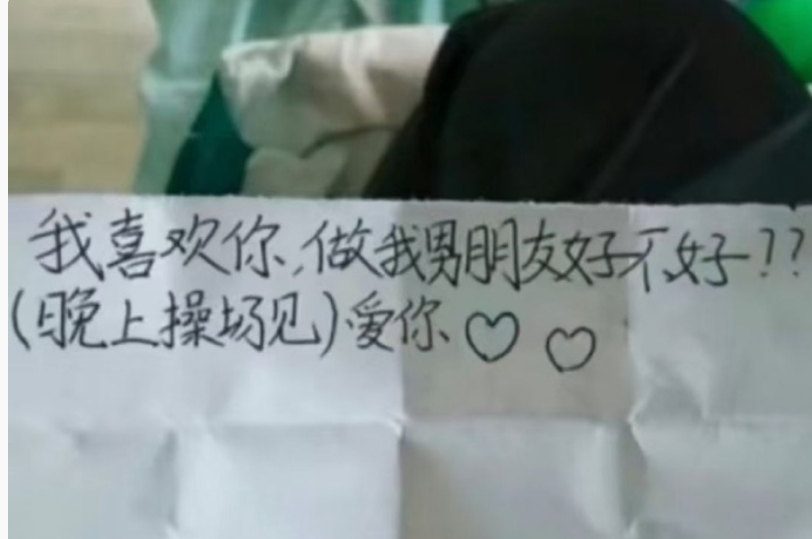 我喜欢你,做我男朋友好不好??
(晚上操场见)爱你♡♡